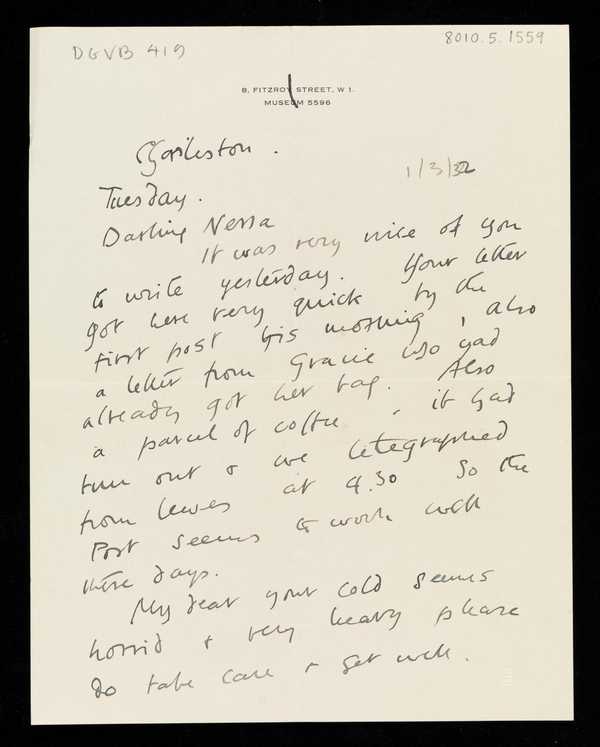 DGVB 419
8010.5.1559
8, FITZROY STREET, W 1.
MUSEUM 5596
Charleston.
1/3/32
Tuesday.
Darling Nessa
It was very nice of you
to write yesterday. Your letter
got here very quick by the
first post this morning, also
a letter from Gracie who had
already got her bag. Also
a parcel of coffee, it had
run out & we telegraphed
from Lewes at 4.30 So the
Post seems to work well
these days.
My dear your cold seems
horrid & very heavy please
do take care & get well.